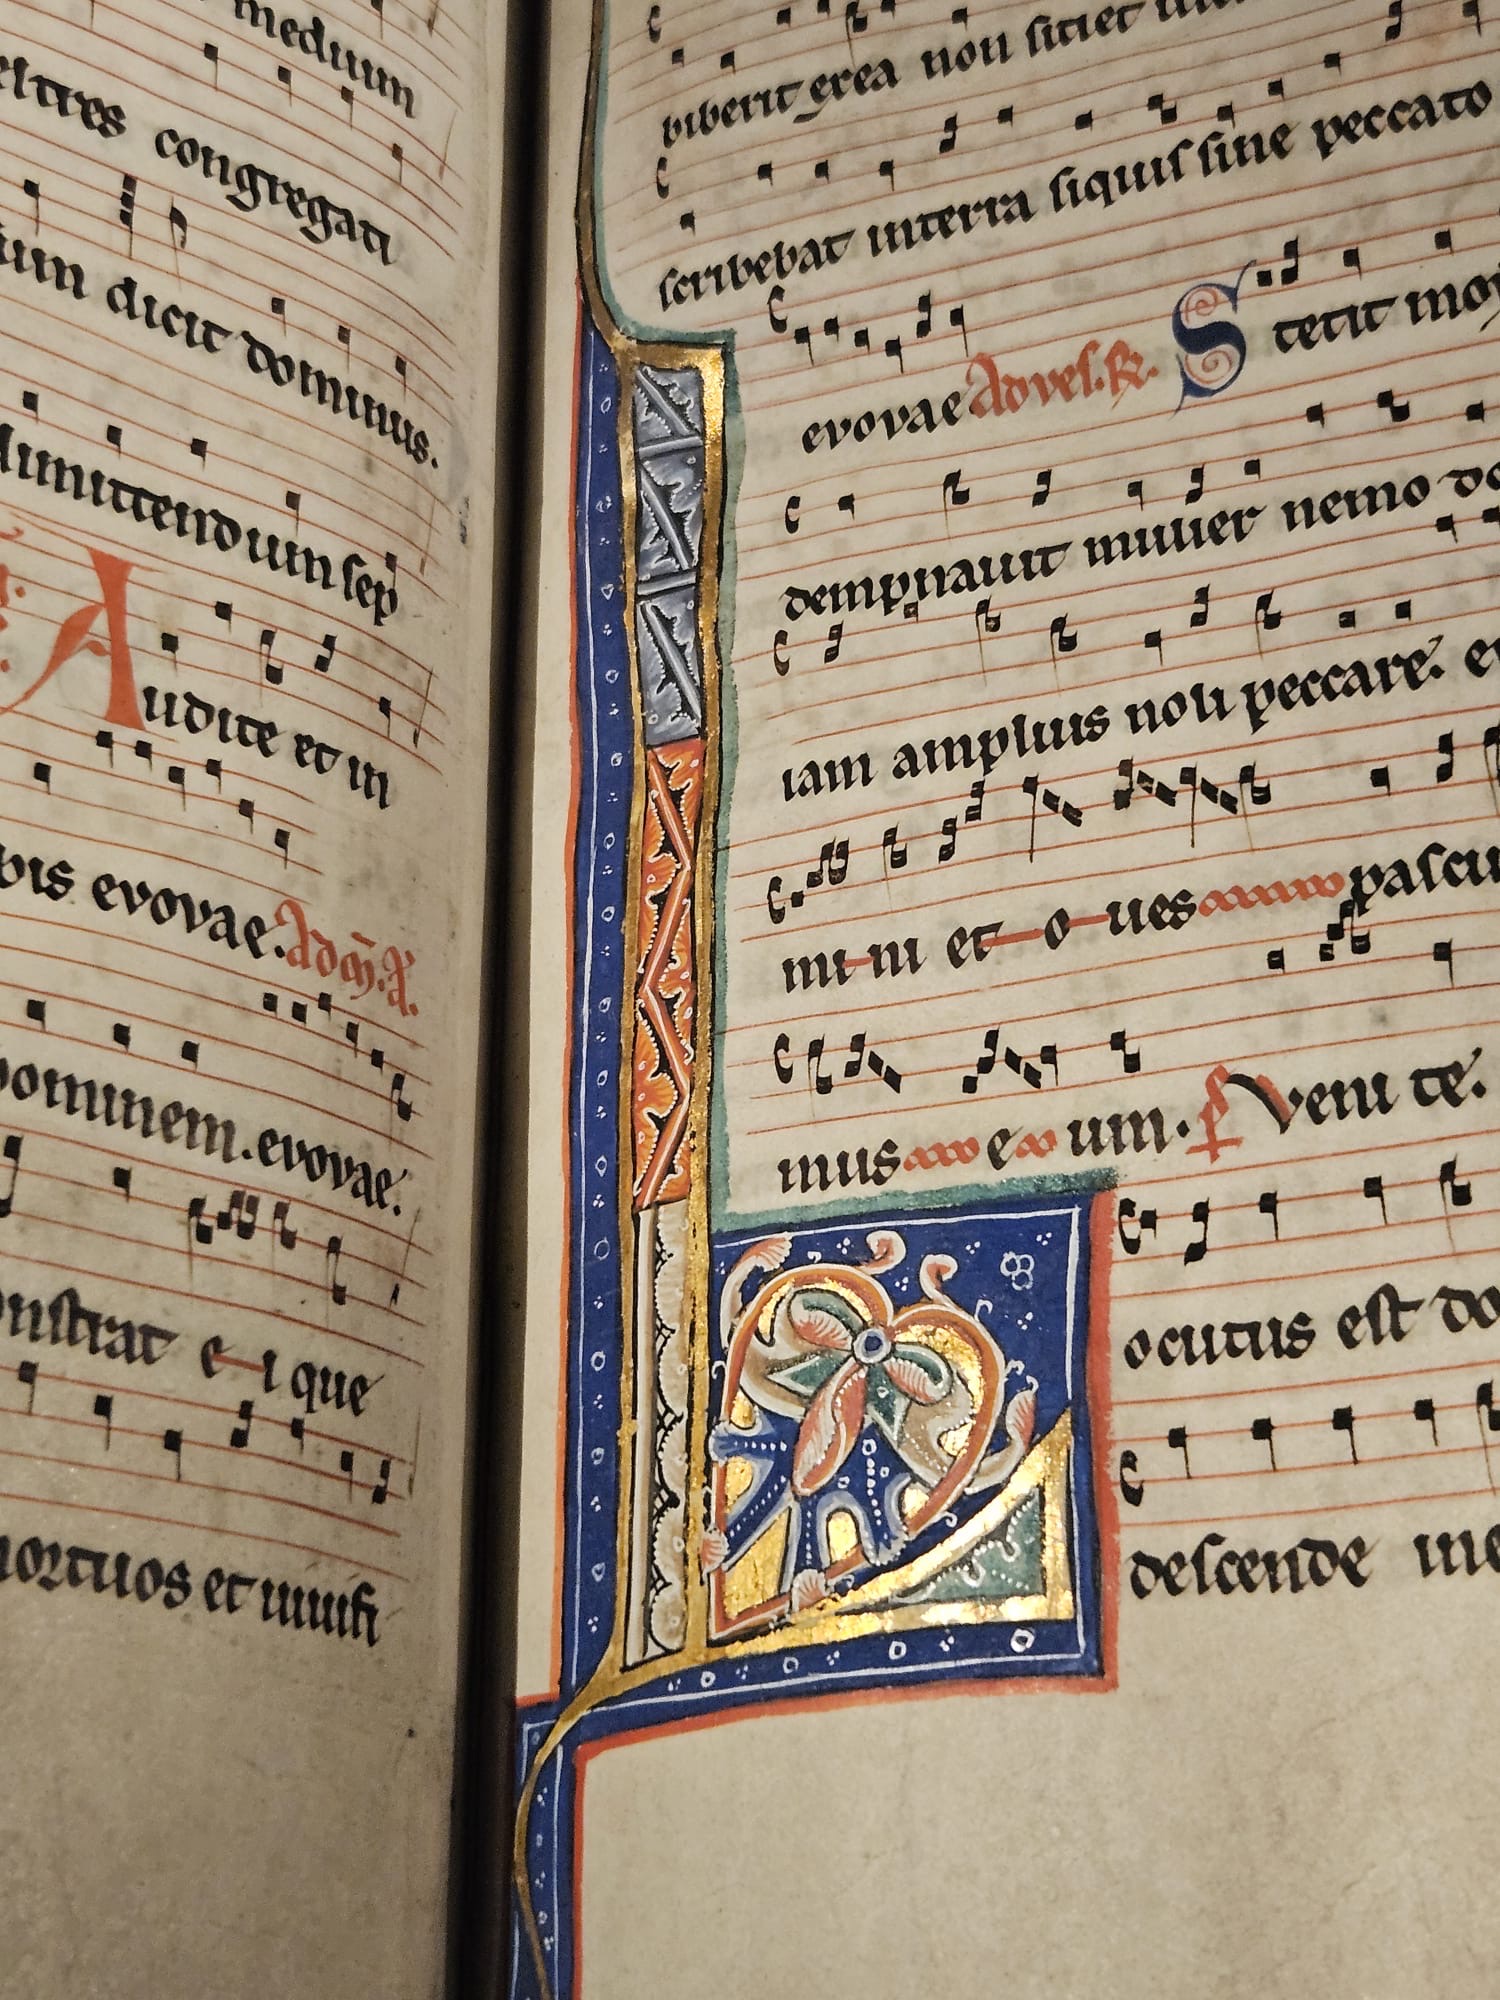 medium
congregati
dicit dominus.
dimittendum sep
Audite et in
vobis evovae. Ad
hominem. evovae.
e i que
mortuos et uiuifi
biberit ex ea non sitiet
scribebat in terra siquis sine peccato
evovae Ad ves. R. Stetit moy
dempnauit mulier nemo do
iam amplius noli peccare. ev
mi ni et o ues pascu
mus e um. ps Venite.
Locutus est do
descende